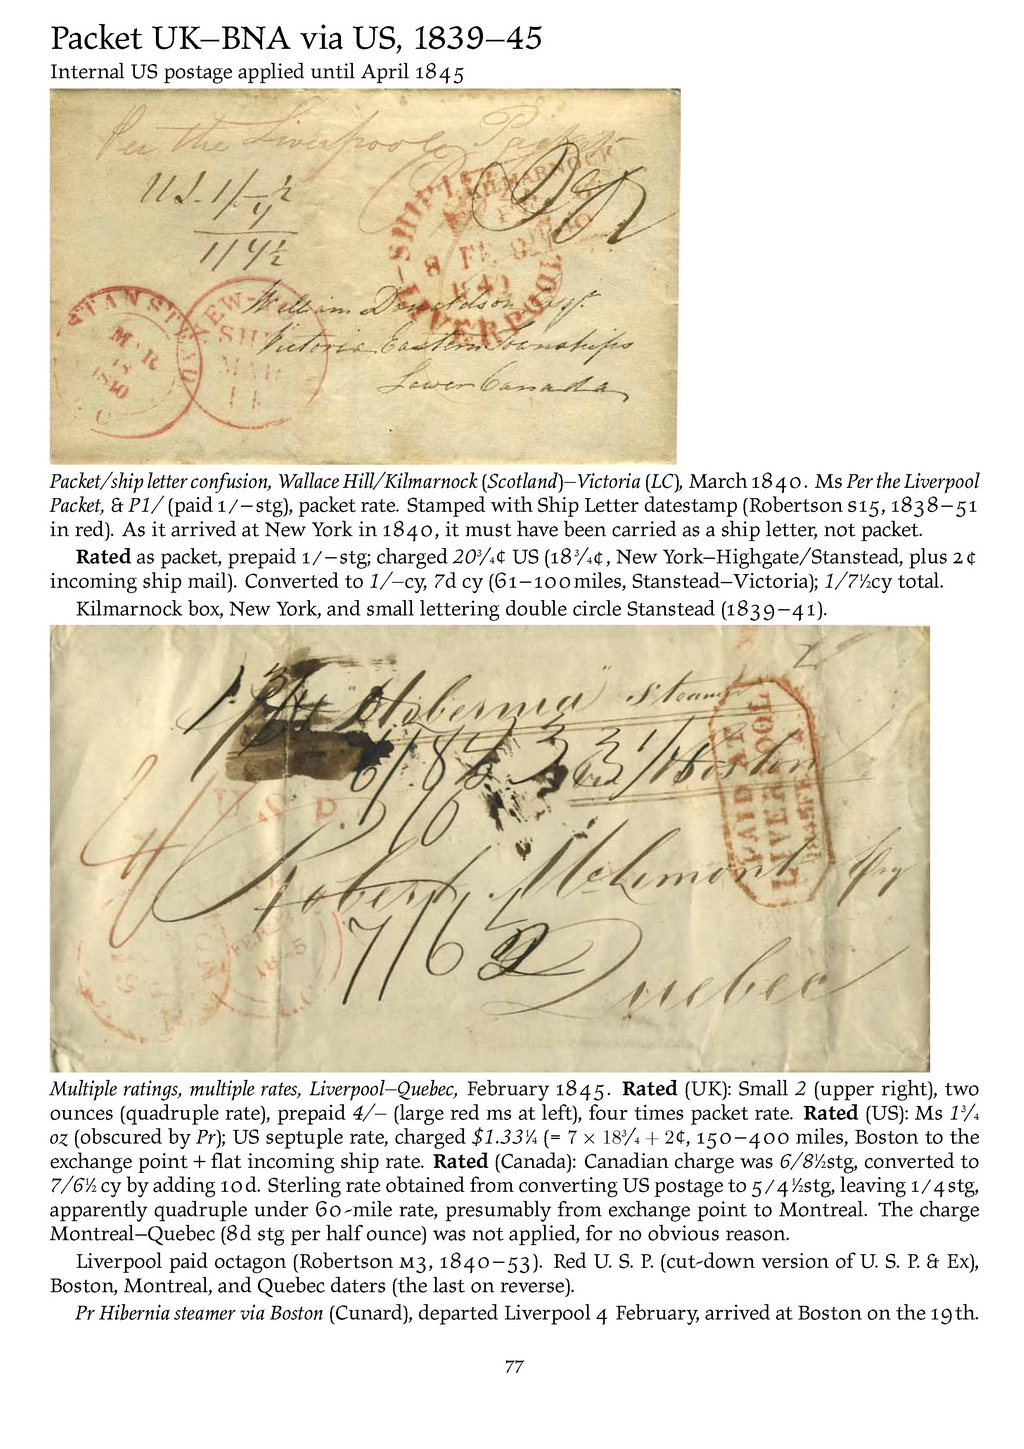 Packet UK–BNA via US, 1839–45
Internal US postage applied until April 1845
Per the Liverpoole Packet
U.S. 1/–½
7
1/7½
SHIP LETTER
KILMARNOCK
8 FE 8
1840
LIVERPOOL
STANSTEAD
MAR
18
1840
NEW-YORK
SHIP
MAR
11
William Donaldson Esqr
Victoria Eastern Townships
Lower Canada
Packet/ship letter confusion, Wallace Hill/Kilmarnock (Scotland)–Victoria (LC), March 1840. Ms Per the Liverpool
Packet, & P1/ (paid 1/–stg), packet rate. Stamped with Ship Letter datestamp (Robertson S15, 1838–51
in red). As it arrived at New York in 1840, it must have been carried as a ship letter, not packet.
Rated as packet, prepaid 1/–stg; charged 20¾¢ US (18¾¢, New York–Highgate/Stanstead, plus 2¢
incoming ship mail). Converted to 1/–cy, 7d cy (61–100miles, Stanstead–Victoria); 1/7½cy total.
Kilmarnock box, New York, and small lettering double circle Stanstead (1839–41).
2
Pr "Hibernia" Steamer
via Boston
PAID AT
LIVERPOOL
U.S. P.
4/
Robert McLimont Esqr
7/6½
Quebec
FEB
1845
Multiple ratings, multiple rates, Liverpool–Quebec, February 1845. Rated (UK): Small 2 (upper right), two
ounces (quadruple rate), prepaid 4/– (large red ms at left), four times packet rate. Rated (US): Ms 1¾
oz (obscured by Pr); US septuple rate, charged $1.33¼ (= 7 × 18¾ + 2¢, 150–400 miles, Boston to the
exchange point + flat incoming ship rate. Rated (Canada): Canadian charge was 6/8½stg, converted to
7/6½ cy by adding 10d. Sterling rate obtained from converting US postage to 5/4½stg, leaving 1/4stg,
apparently quadruple under 60-mile rate, presumably from exchange point to Montreal. The charge
Montreal–Quebec (8d stg per half ounce) was not applied, for no obvious reason.
Liverpool paid octagon (Robertson M3, 1840–53). Red U. S. P. (cut-down version of U. S. P. & Ex),
Boston, Montreal, and Quebec daters (the last on reverse).
Pr Hibernia steamer via Boston (Cunard), departed Liverpool 4 February, arrived at Boston on the 19th.
77